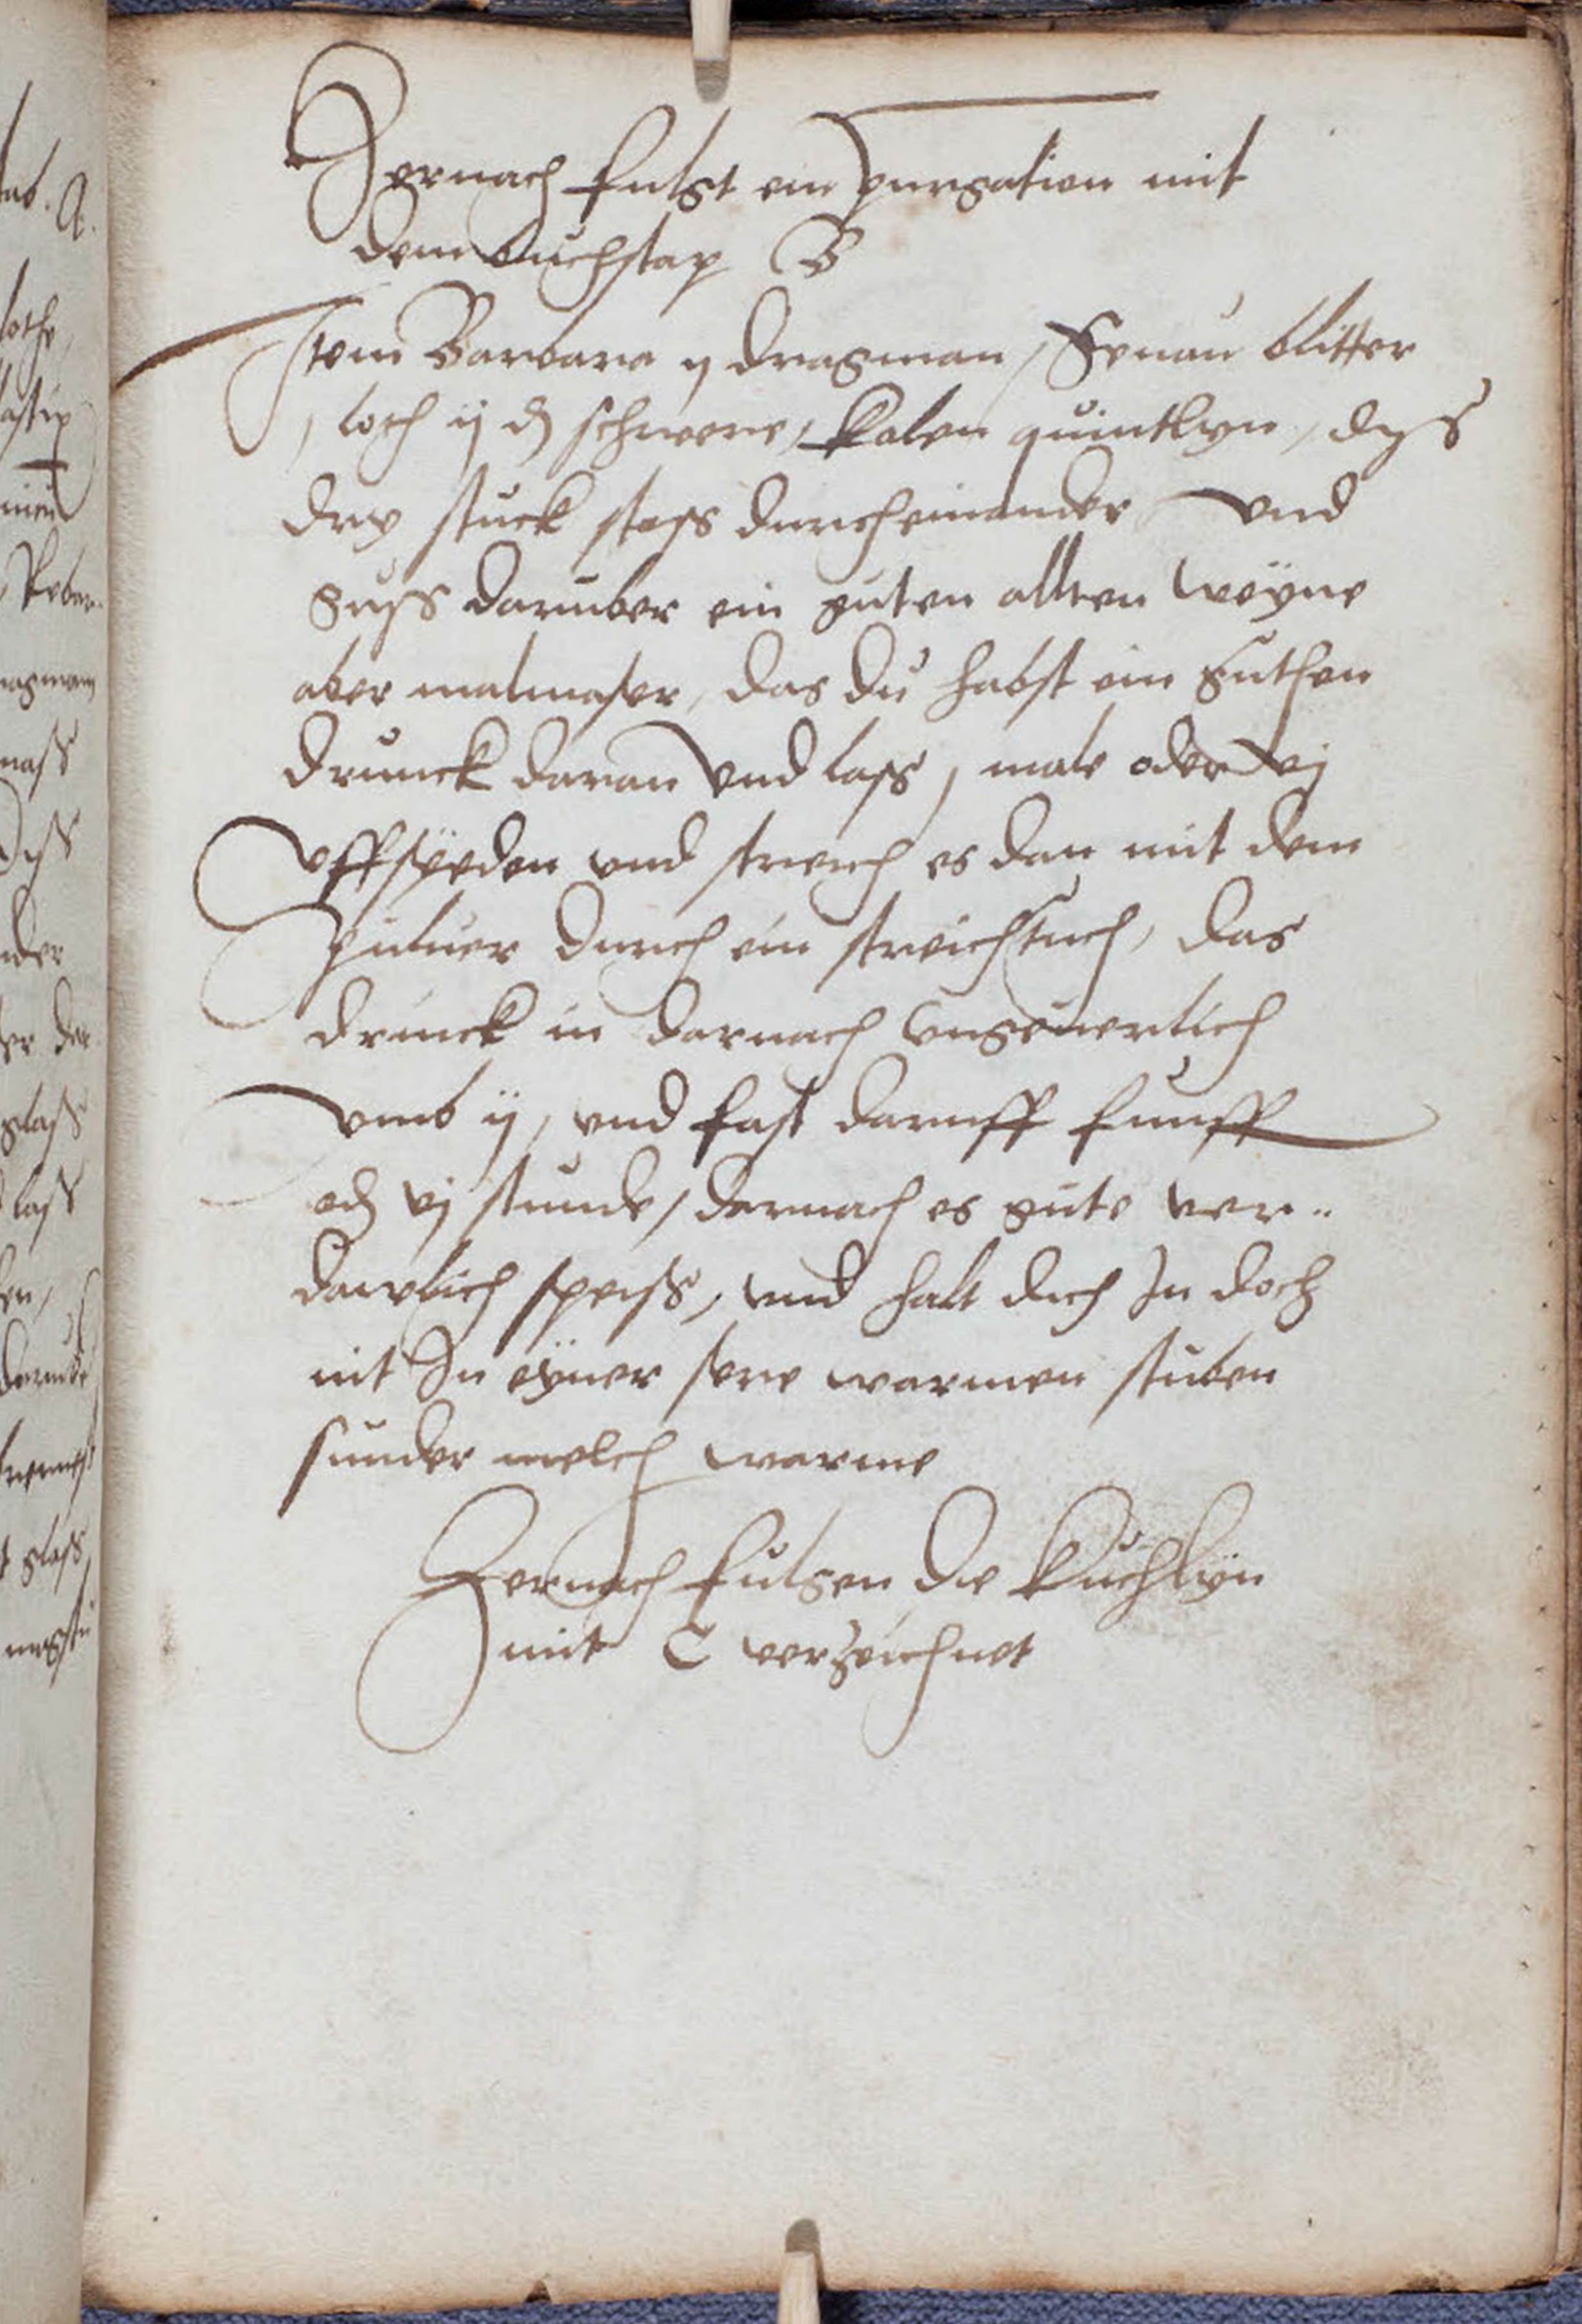 Hernach fulgt ein purgation mit
dem buchstap B
Item Barbara ij dragman, Senau blitter
j loth ij d schwere, kalen quintlyn, dys
dry stuck stoss durcheinander und
guss daruber ein guten allten weyne
aber malmaser, das du habst ein guthen
drunck daran und lass j male oder vj
uffsyeden und streich es dan mit dem
puluer durch ein streichtuch, das
drinck in darnach ungeuerlich
umb ij, und fast daruff funff
od vj stunde, darnach es gute ver„
dawlich speiss, und halt dich In doch
nit In eyner sere warmen stuben
sunder melch warme
Hernach fulgen die kuchlyn
mit C verzeichnet